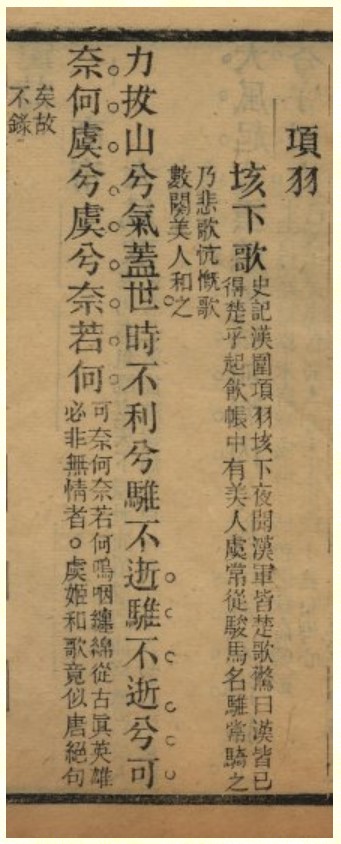 項羽
垓下歌
史記漢圍項羽垓下夜聞漢軍皆楚歌驚曰漢皆已
得楚乎起飲帳中有美人虞常從駿馬名騅常騎之
乃悲歌忼慨歌
數闋美人和之
力拔山兮氣蓋世時不利兮騅不逝騅不逝兮可
奈何虞兮虞兮奈若何
可奈何奈若何嗚咽纏綿從古眞英雄
必非無情者。虞姬和歌竟似唐絕句
矣故
不錄